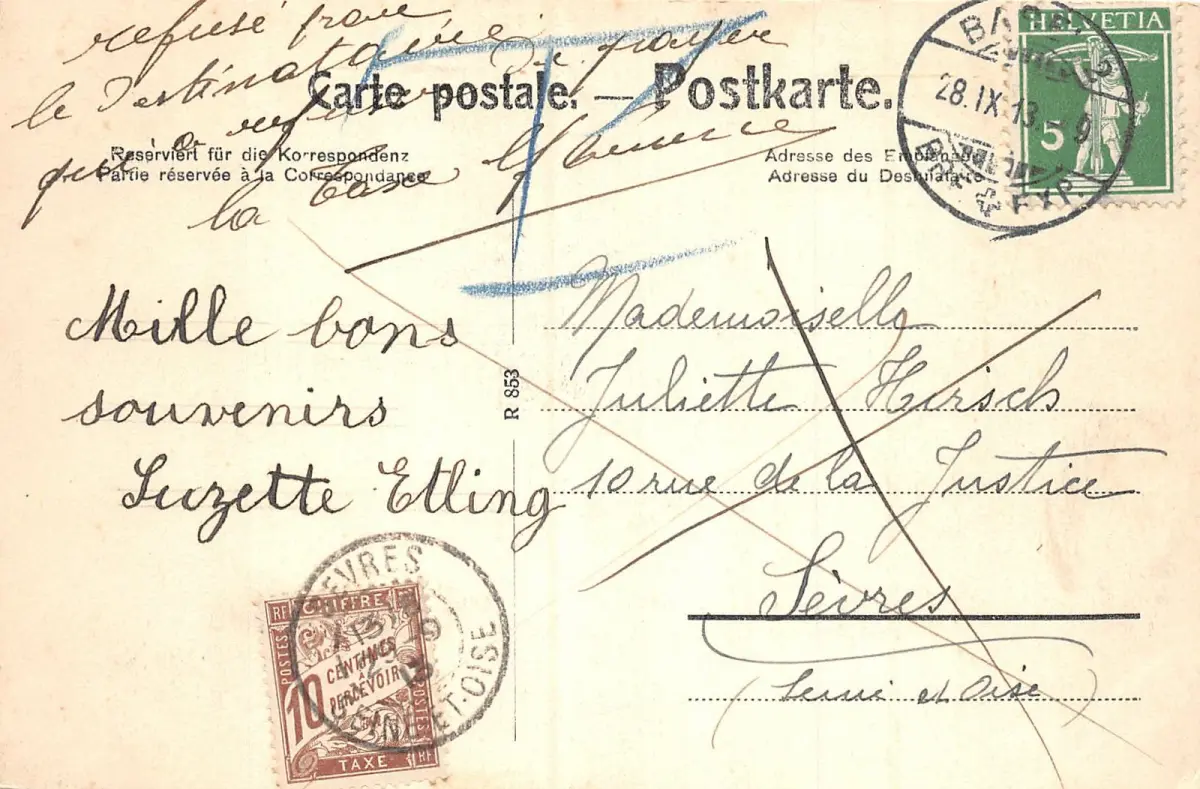 refusé par
le Destinataire
qui a refusé de payer
la taxe
Carte postale. — Postkarte.
Reserviert für die Korrespondenz
Partie réservée à la Correspondance
Adresse des Empfängers
Adresse du Destinataire
HELVETIA
5
BASEL 2
28.IX.13.-9
BRIEF EXP.
T
Mille bons
souvenirs
Suzette Etling
R 853
Mademoiselle
Juliette Hirsch
10 rue de la Justice
Sèvres
(Seine et Oise)
SEVRES
SEINE-ET-OISE
RF CHIFFRE
POSTES
10
CENTIMES
À
PERCEVOIR
POSTES
TAXE